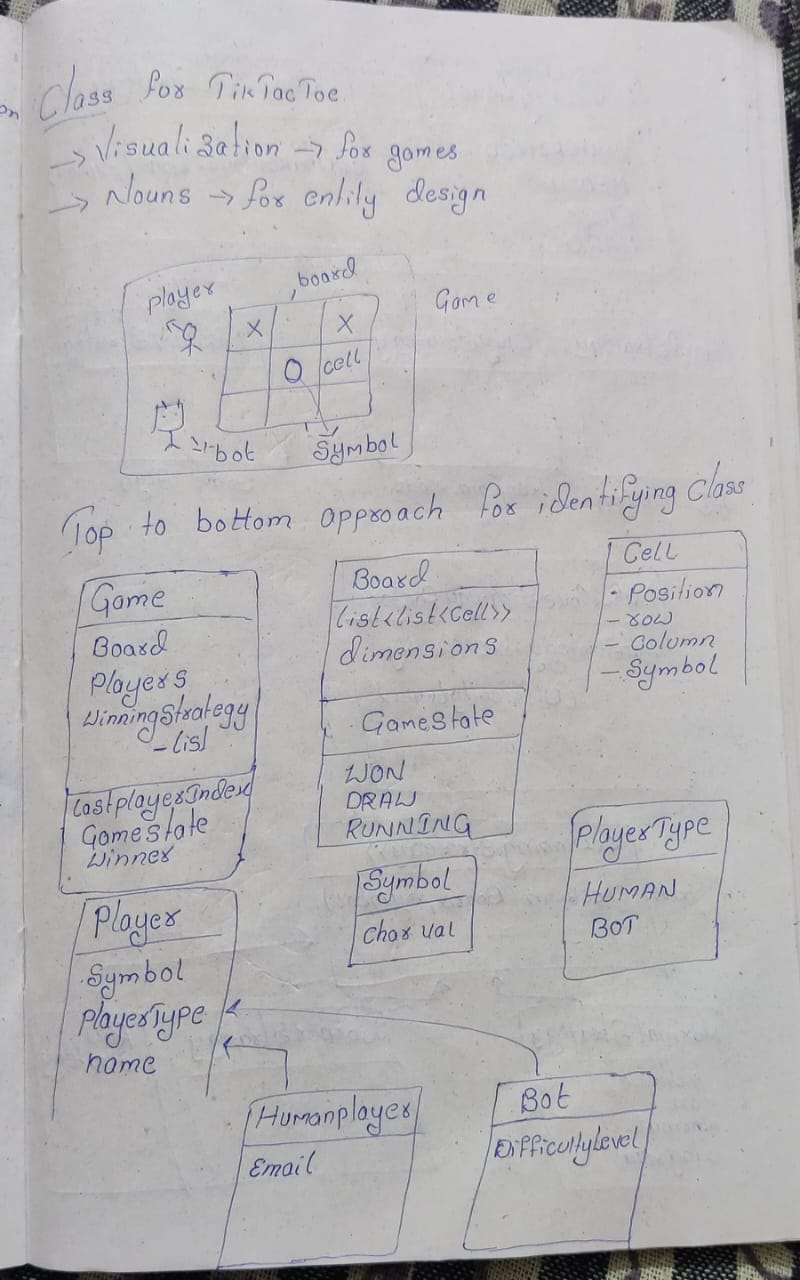 on
Class for TikTacToe
→ Visualization → for games
→ Nouns → for entity design
player
board
Game
X
X
O
cell
bot
Symbol
Top to bottom approach for identifying Class
Game
Board
Players
WinningStrategy
- list
LastplayerIndex
GameState
Winner
Board
List<list<Cell>>
dimensions
GameState
WON
DRAW
RUNNING
Cell
- Position
- row
- Column
- Symbol
Symbol
char val
PlayerType
HUMAN
BOT
Player
Symbol
PlayerType
name
Humanplayer
Email
Bot
DifficultyLevel